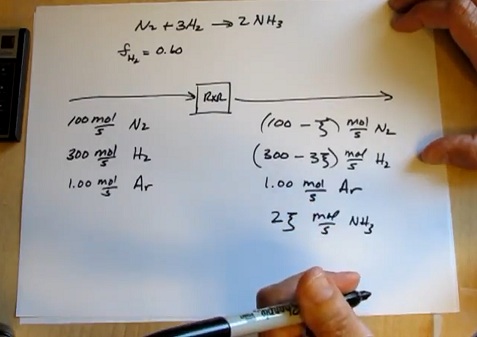 N₂ + 3H₂ → 2 NH₃
f_H₂ = 0.60
RXR
100 mol/s N₂
300 mol/s H₂
1.00 mol/s Ar
(100 - ξ) mol/s N₂
(300 - 3ξ) mol/s H₂
1.00 mol/s Ar
2ξ mol/s NH₃